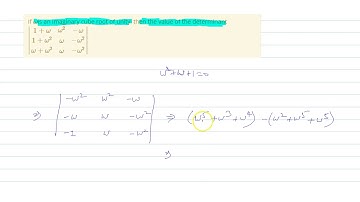 If ω is an imaginary cube root of unity, then the value of the determinant
1+ω ω² −ω
1+ω² ω −ω²
ω+ω² ω −ω²
ω²+ω+1=0
−ω² ω² −ω
⇒ −ω ω −ω² ⇒ (ω⁵+ω³+ω⁴) −(ω²+ω⁵+ω⁵)
−1 ω −ω²
⇒